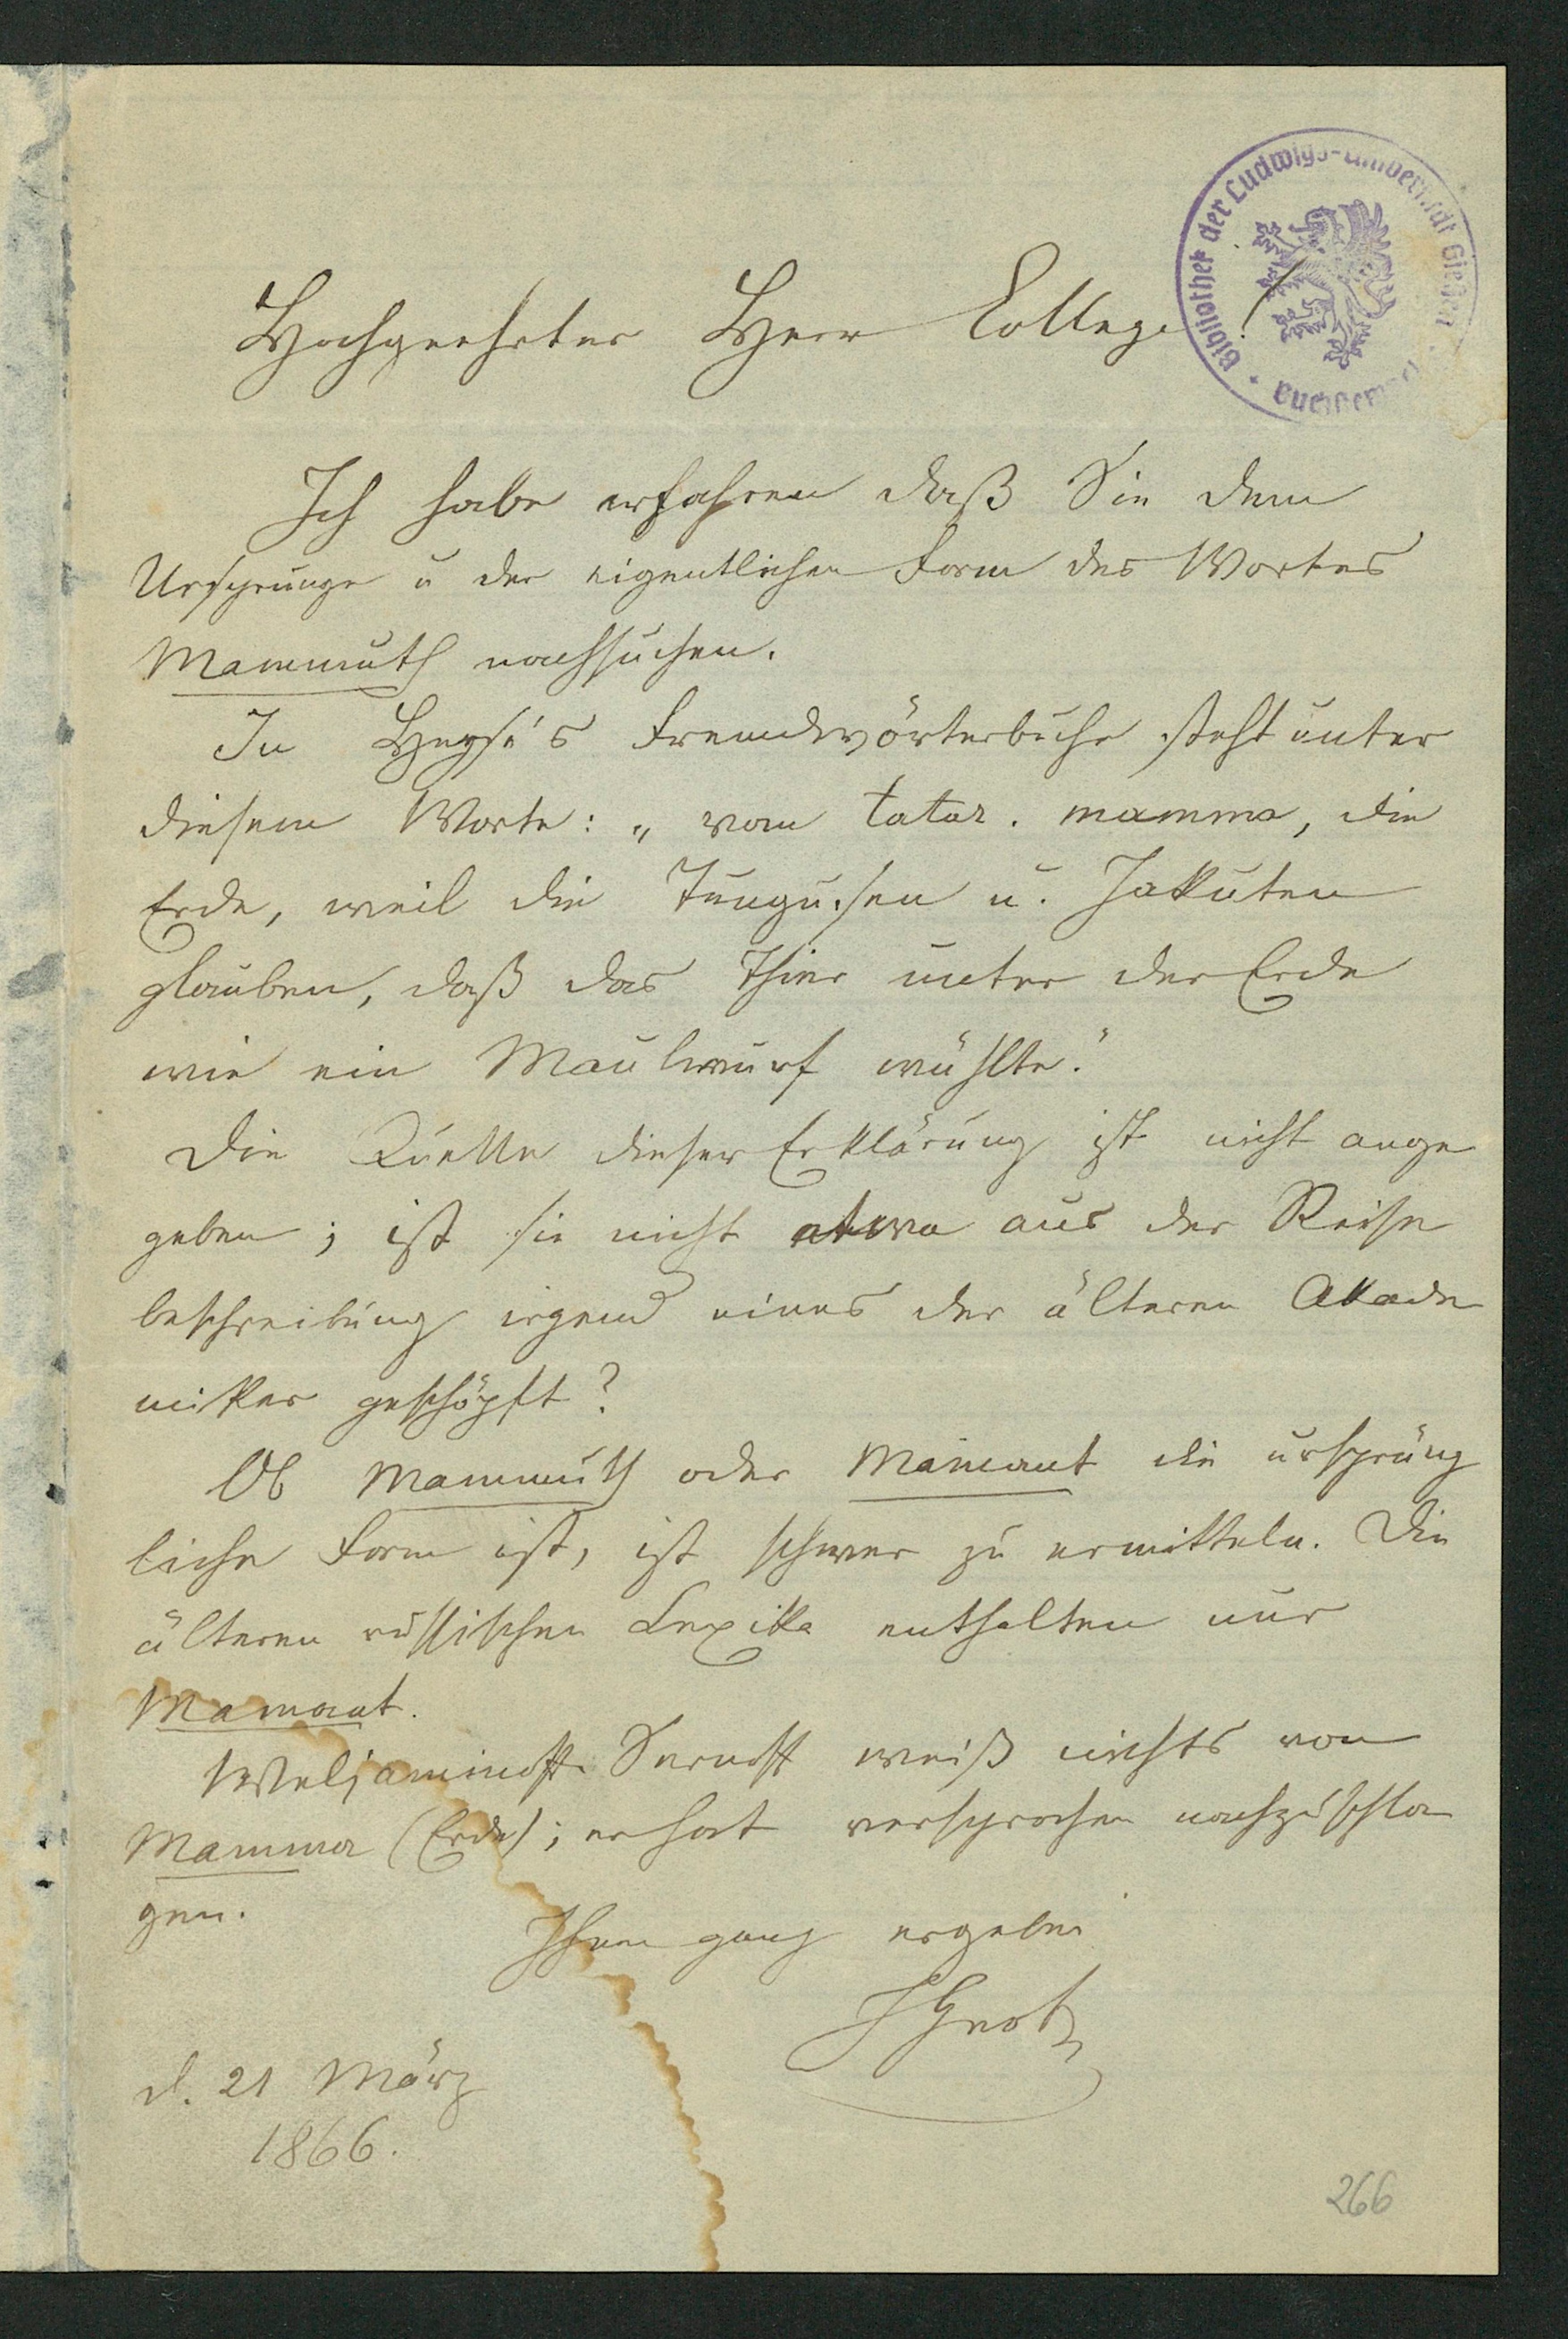 Bibliothek der Ludwigs-Universität Gießen
Hochgeehrter Herr College!
Ich habe erfahren daß Sie dem
Ursprunge u der eigentlichen Form des Wortes
Mammuth nachsuchen.
In Heyse's Fremdwörterbuche steht unter
diesem Worte: „vom tatar. mamma, die
Erde, weil die Tungusen u. Jakuten
glauben, daß das Thier unter der Erde
wie ein Maulwurf wühlte."
Die Quelle dieser Erklärung ist nicht ange
geben; ist sie nicht etwa aus der Reise
beschreibung irgend eines der älteren Akade
miker geschöpft?
Ob Mammuth oder Mamant die ursprüng
liche Form ist, ist schwer zu ermitteln. Die
älteren russischen Lexika enthalten nur
Mamant.
Weljaminoff-Sernoff weiß nichts von
Mamma (Erde); er hat versprochen nachzuschla
gen.
Ihnen ganz ergeben
JGrot
d. 21 März
1866.
266